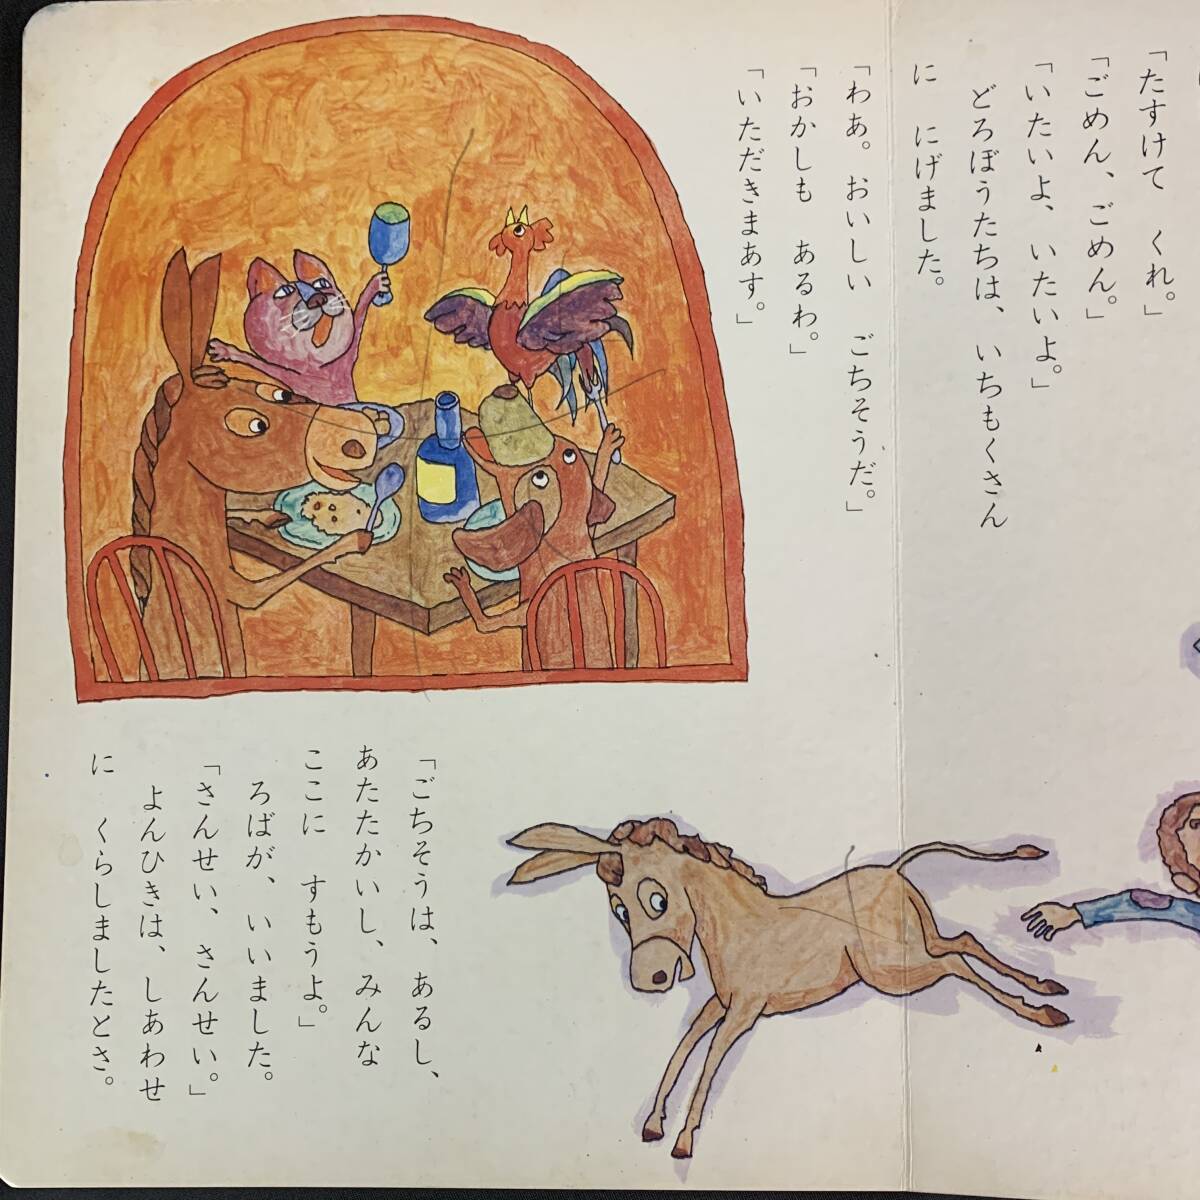 「たすけて　くれ。」
「ごめん、ごめん。」
「いたいよ、いたいよ。」
どろぼうたちは、いちもくさん
に　にげました。
「わあ。おいしい　ごちそうだ。」
「おかしも　あるわ。」
「いただきまあす。」
「ごちそうは、あるし、
あたたかいし、みんな
ここに　すもうよ。」
ろばが、いいました。
「さんせい、さんせい。」
よんひきは、しあわせ
に　くらしましたとさ。